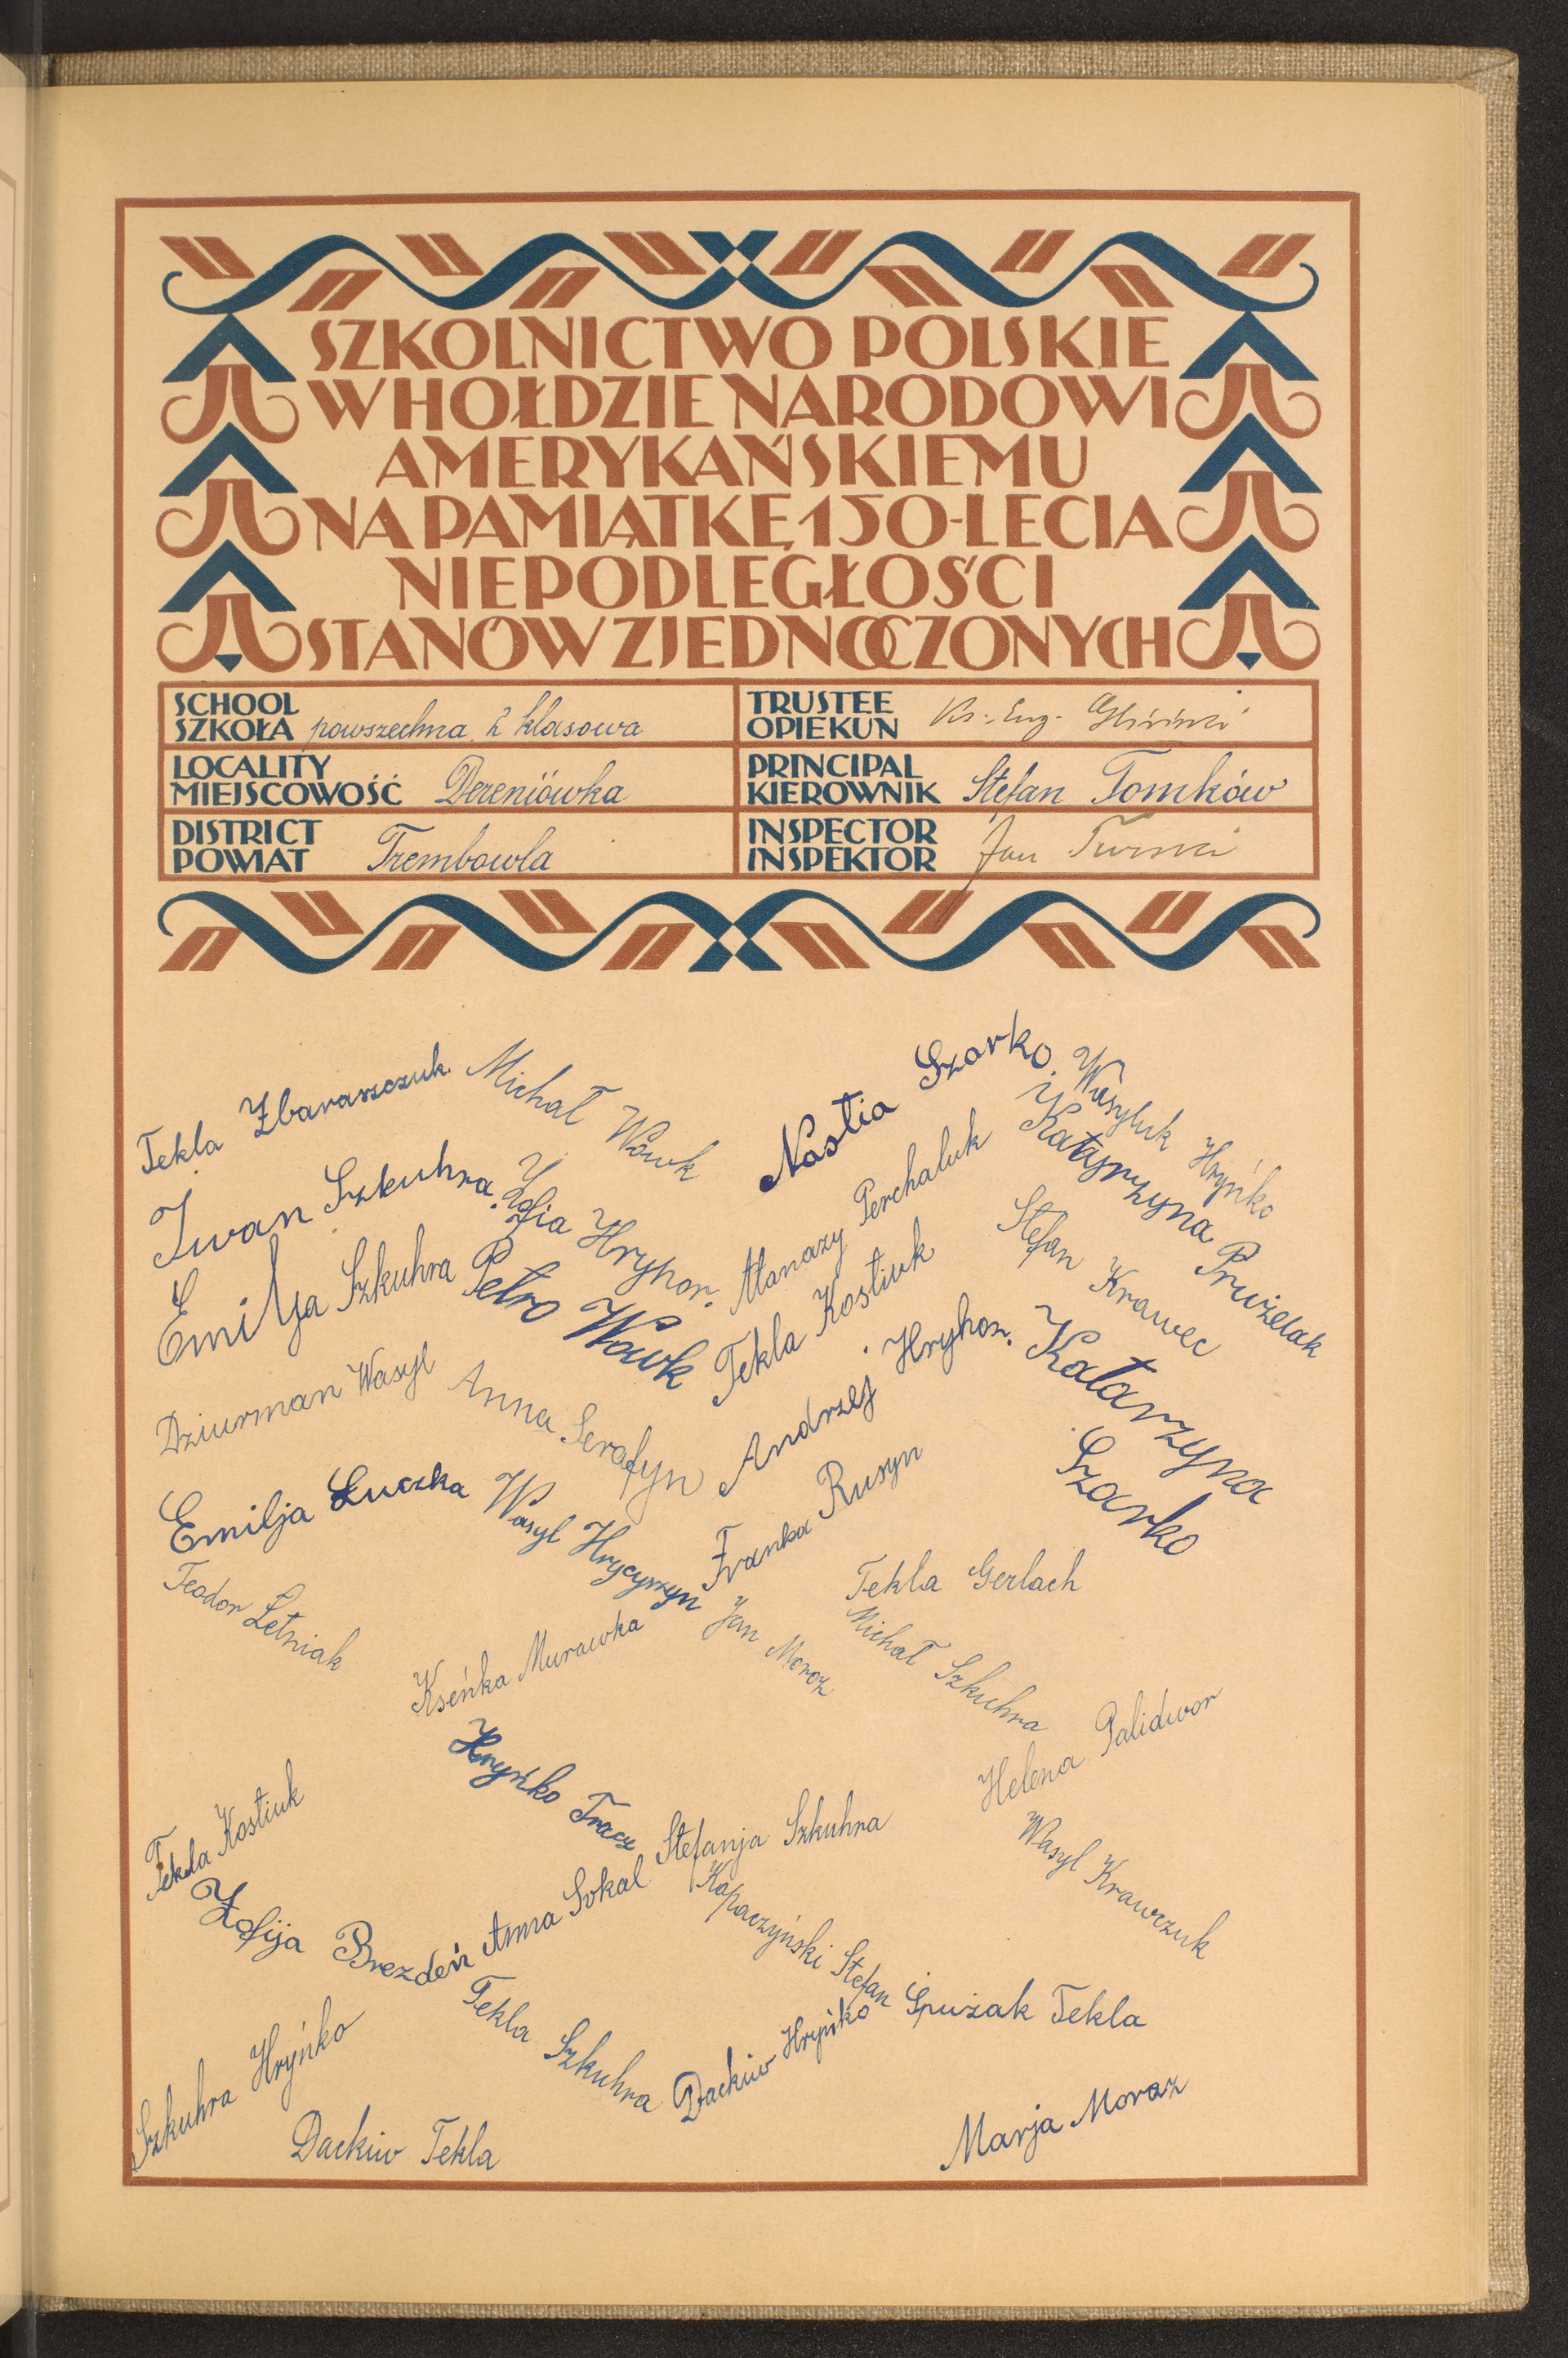 SZKOLNICTWO POLSKIE
W HOŁDZIE NARODOWI
AMERYKAŃSKIEMU
NA PAMIĄTKĘ 150-LECIA
NIEPODLEGŁOŚCI
STANÓW ZJEDNOCZONYCH
SCHOOL
SZKOŁA powszechna 2 klasowa
TRUSTEE
OPIEKUN Ks. Eug.
LOCALITY
MIEJSCOWOŚĆ Dereniówka
PRINCIPAL
KIEROWNIK Stefan Tomków
DISTRICT
POWIAT Trembowla
INSPECTOR
INSPEKTOR Jan
Tekla Zbaraszczuk
Michał Wowk
Nastia Szarko
Wasyluk Hryńko
Iwan Szkuhra
Zofia Hryhor.
Atanazy Perchaluk
Katarzyna Prużelak
Emilja Szkuhra
Petro Wowk
Tekla Kostiuk
Stefan Krawec
Dziurman Wasyl
Anna Serafyn
Andrzej Hryhor.
Katarzyna
Szarko
Emilja Łuczka
Wasyl Hrycyszyn
Franka Rusyn
Tekla Gerlach
Teodor Letniak
Kseńka Murawka
Jan Moroz
Michał Szkuhra
Hryńko Tracz
Helena Palidwor
Tekla Kostiuk
Stefanja Szkuhra
Wasyl Krawczuk
Zofija Brezdeń
Anna Sokal
Kopaczyński Stefan
Tekla Szkuhra
Dackiw Hryńko
Spużak Tekla
Szkuhra Hryńko
Dackiw Tekla
Marja Moraz